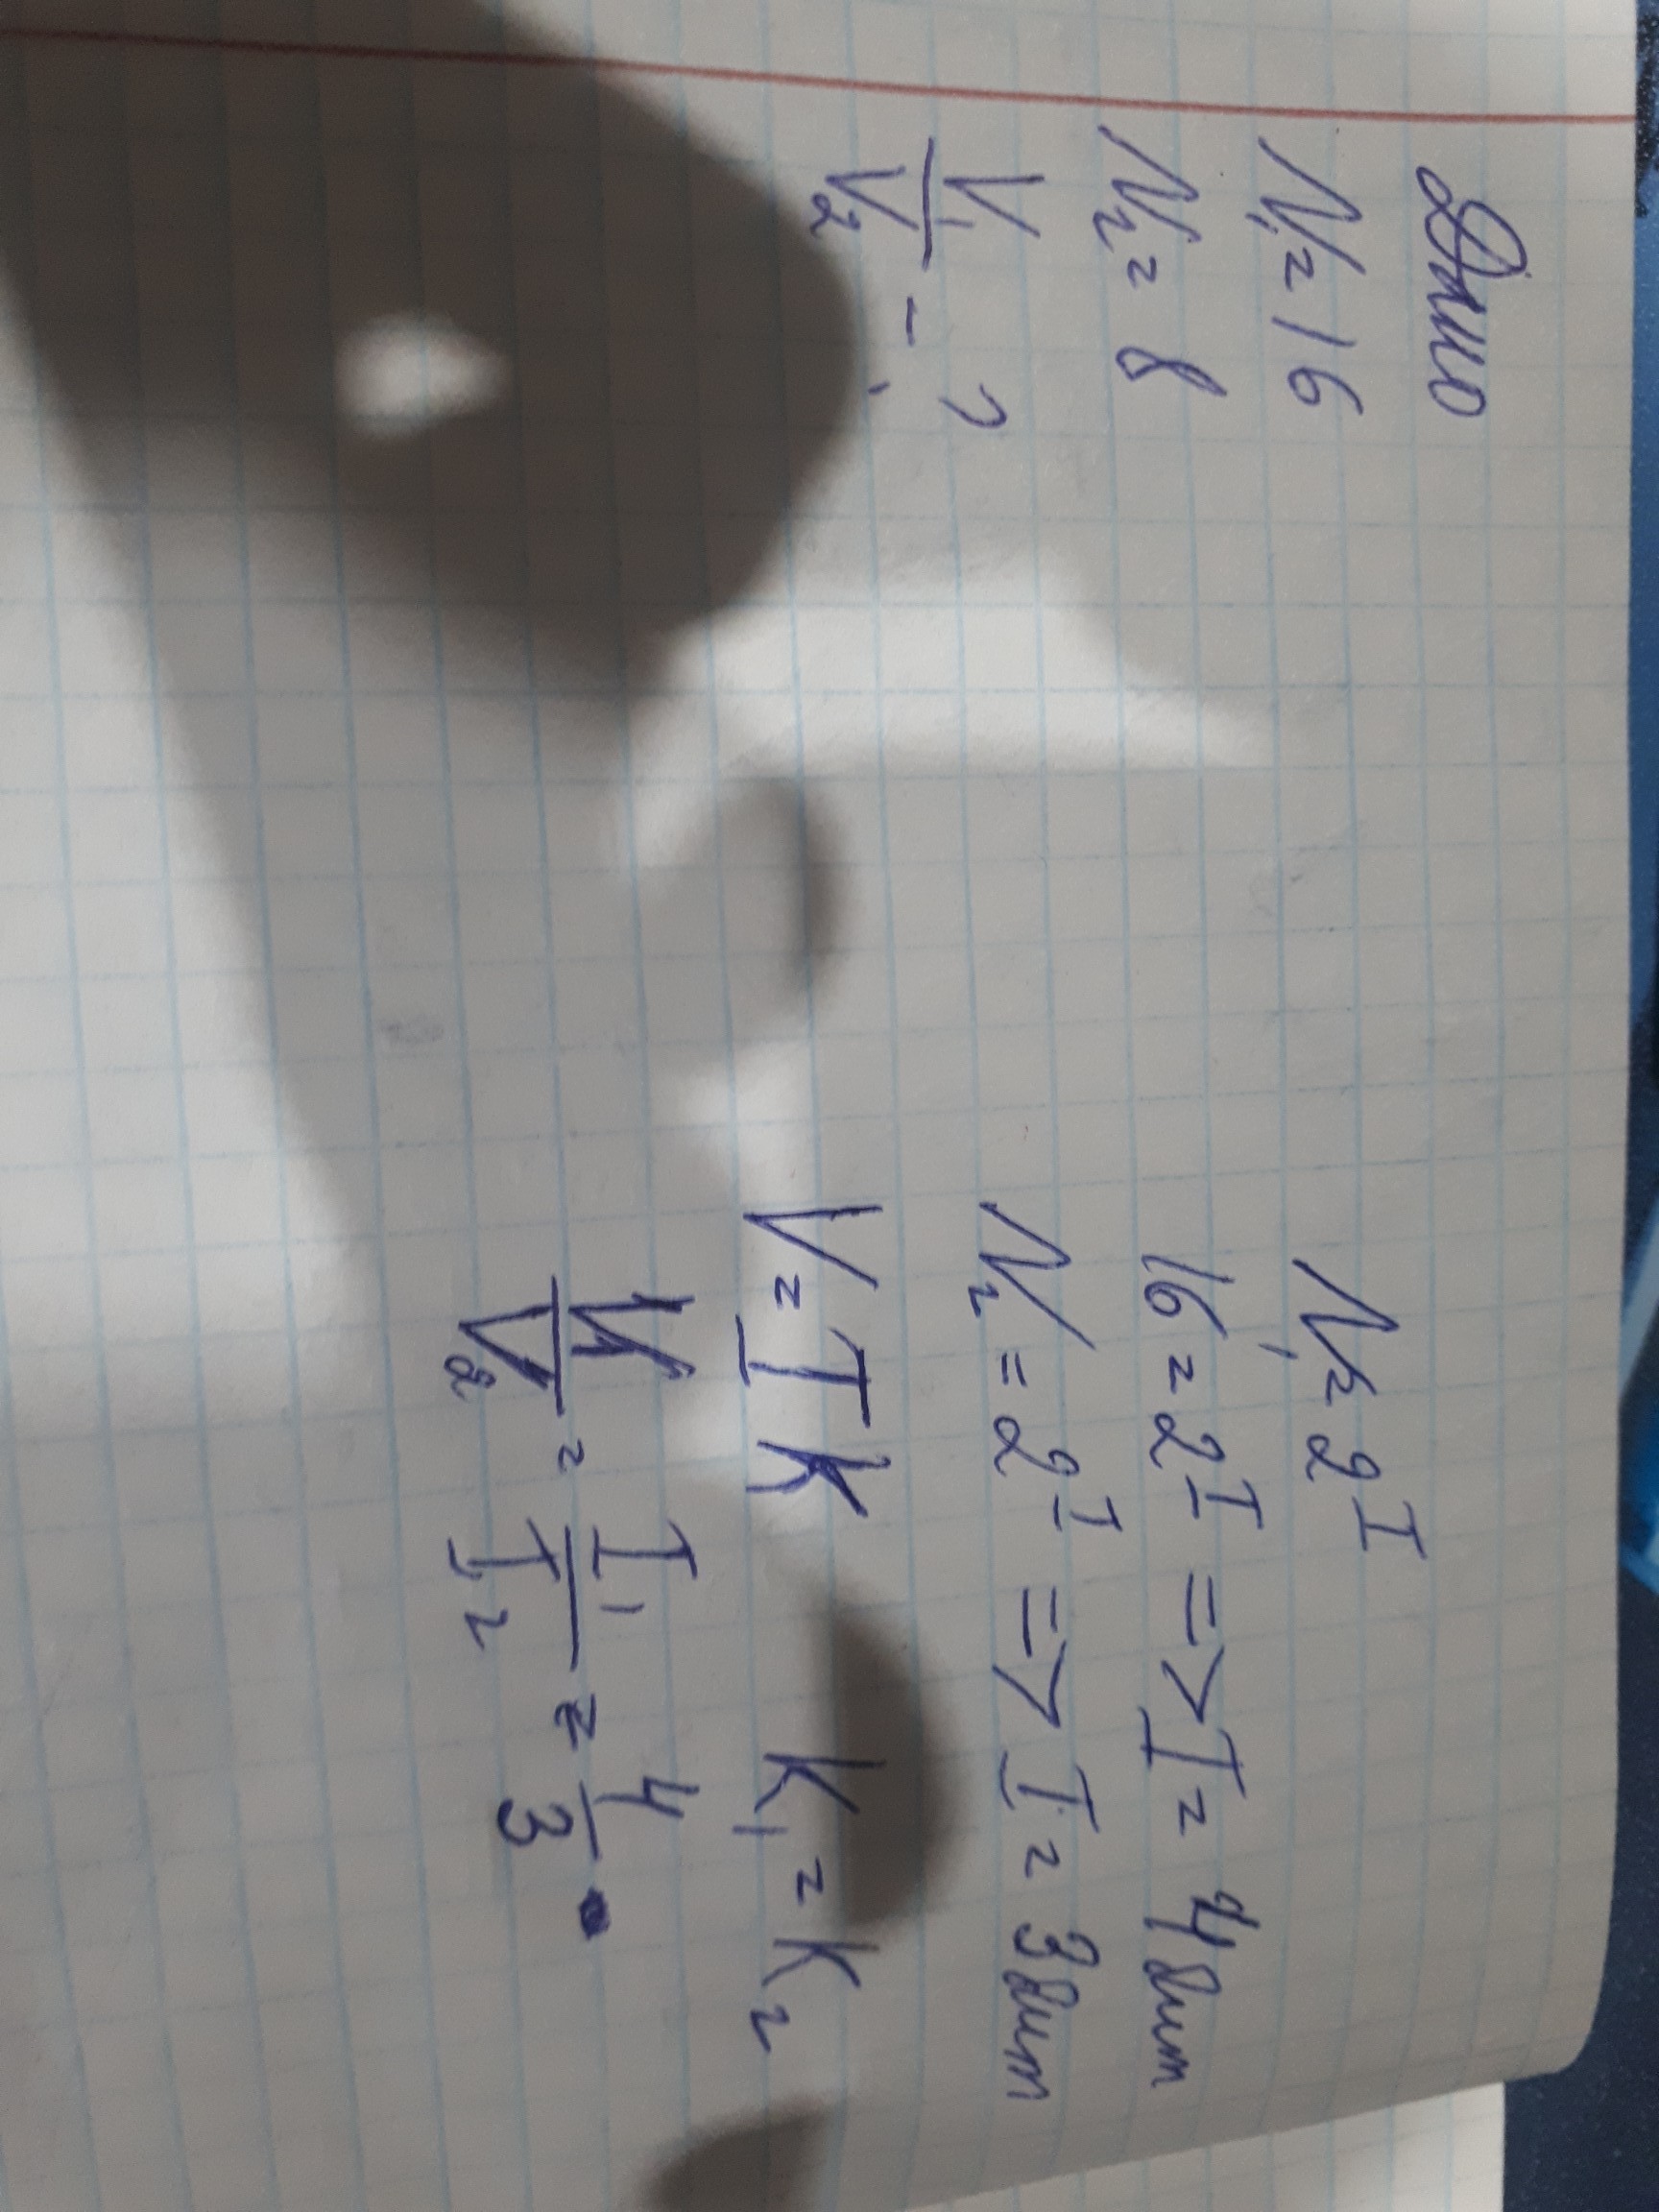 Дано
N₁ = 16
N₂ = 8
V₁/V₂ - ?
N₁ = 2^I
16 = 2^I => I = 4 бит
N₂ = 2^I => I = 3 бит
V = I K K₁ = K₂
V₁/V₂ = I₁/I₂ = 4/3